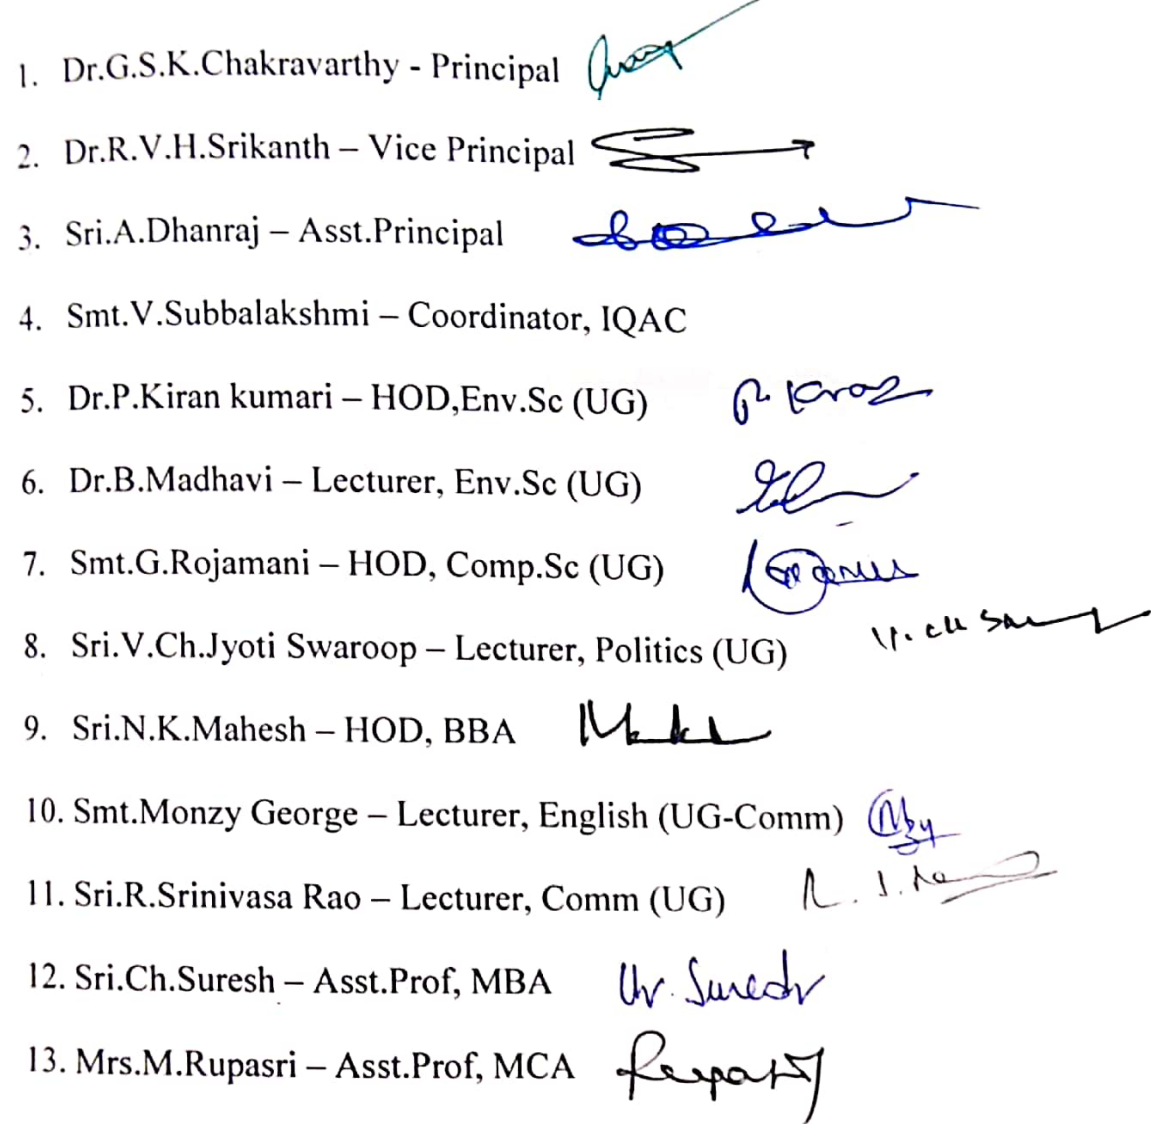 1. Dr.G.S.K.Chakravarthy - Principal
2. Dr.R.V.H.Srikanth – Vice Principal
3. Sri.A.Dhanraj – Asst.Principal
4. Smt.V.Subbalakshmi – Coordinator, IQAC
5. Dr.P.Kiran kumari – HOD,Env.Sc (UG)
6. Dr.B.Madhavi – Lecturer, Env.Sc (UG)
7. Smt.G.Rojamani – HOD, Comp.Sc (UG)
8. Sri.V.Ch.Jyoti Swaroop – Lecturer, Politics (UG)
9. Sri.N.K.Mahesh – HOD, BBA
10. Smt.Monzy George – Lecturer, English (UG-Comm)
11. Sri.R.Srinivasa Rao – Lecturer, Comm (UG)
12. Sri.Ch.Suresh – Asst.Prof, MBA Ch. Suresh
13. Mrs.M.Rupasri – Asst.Prof, MCA